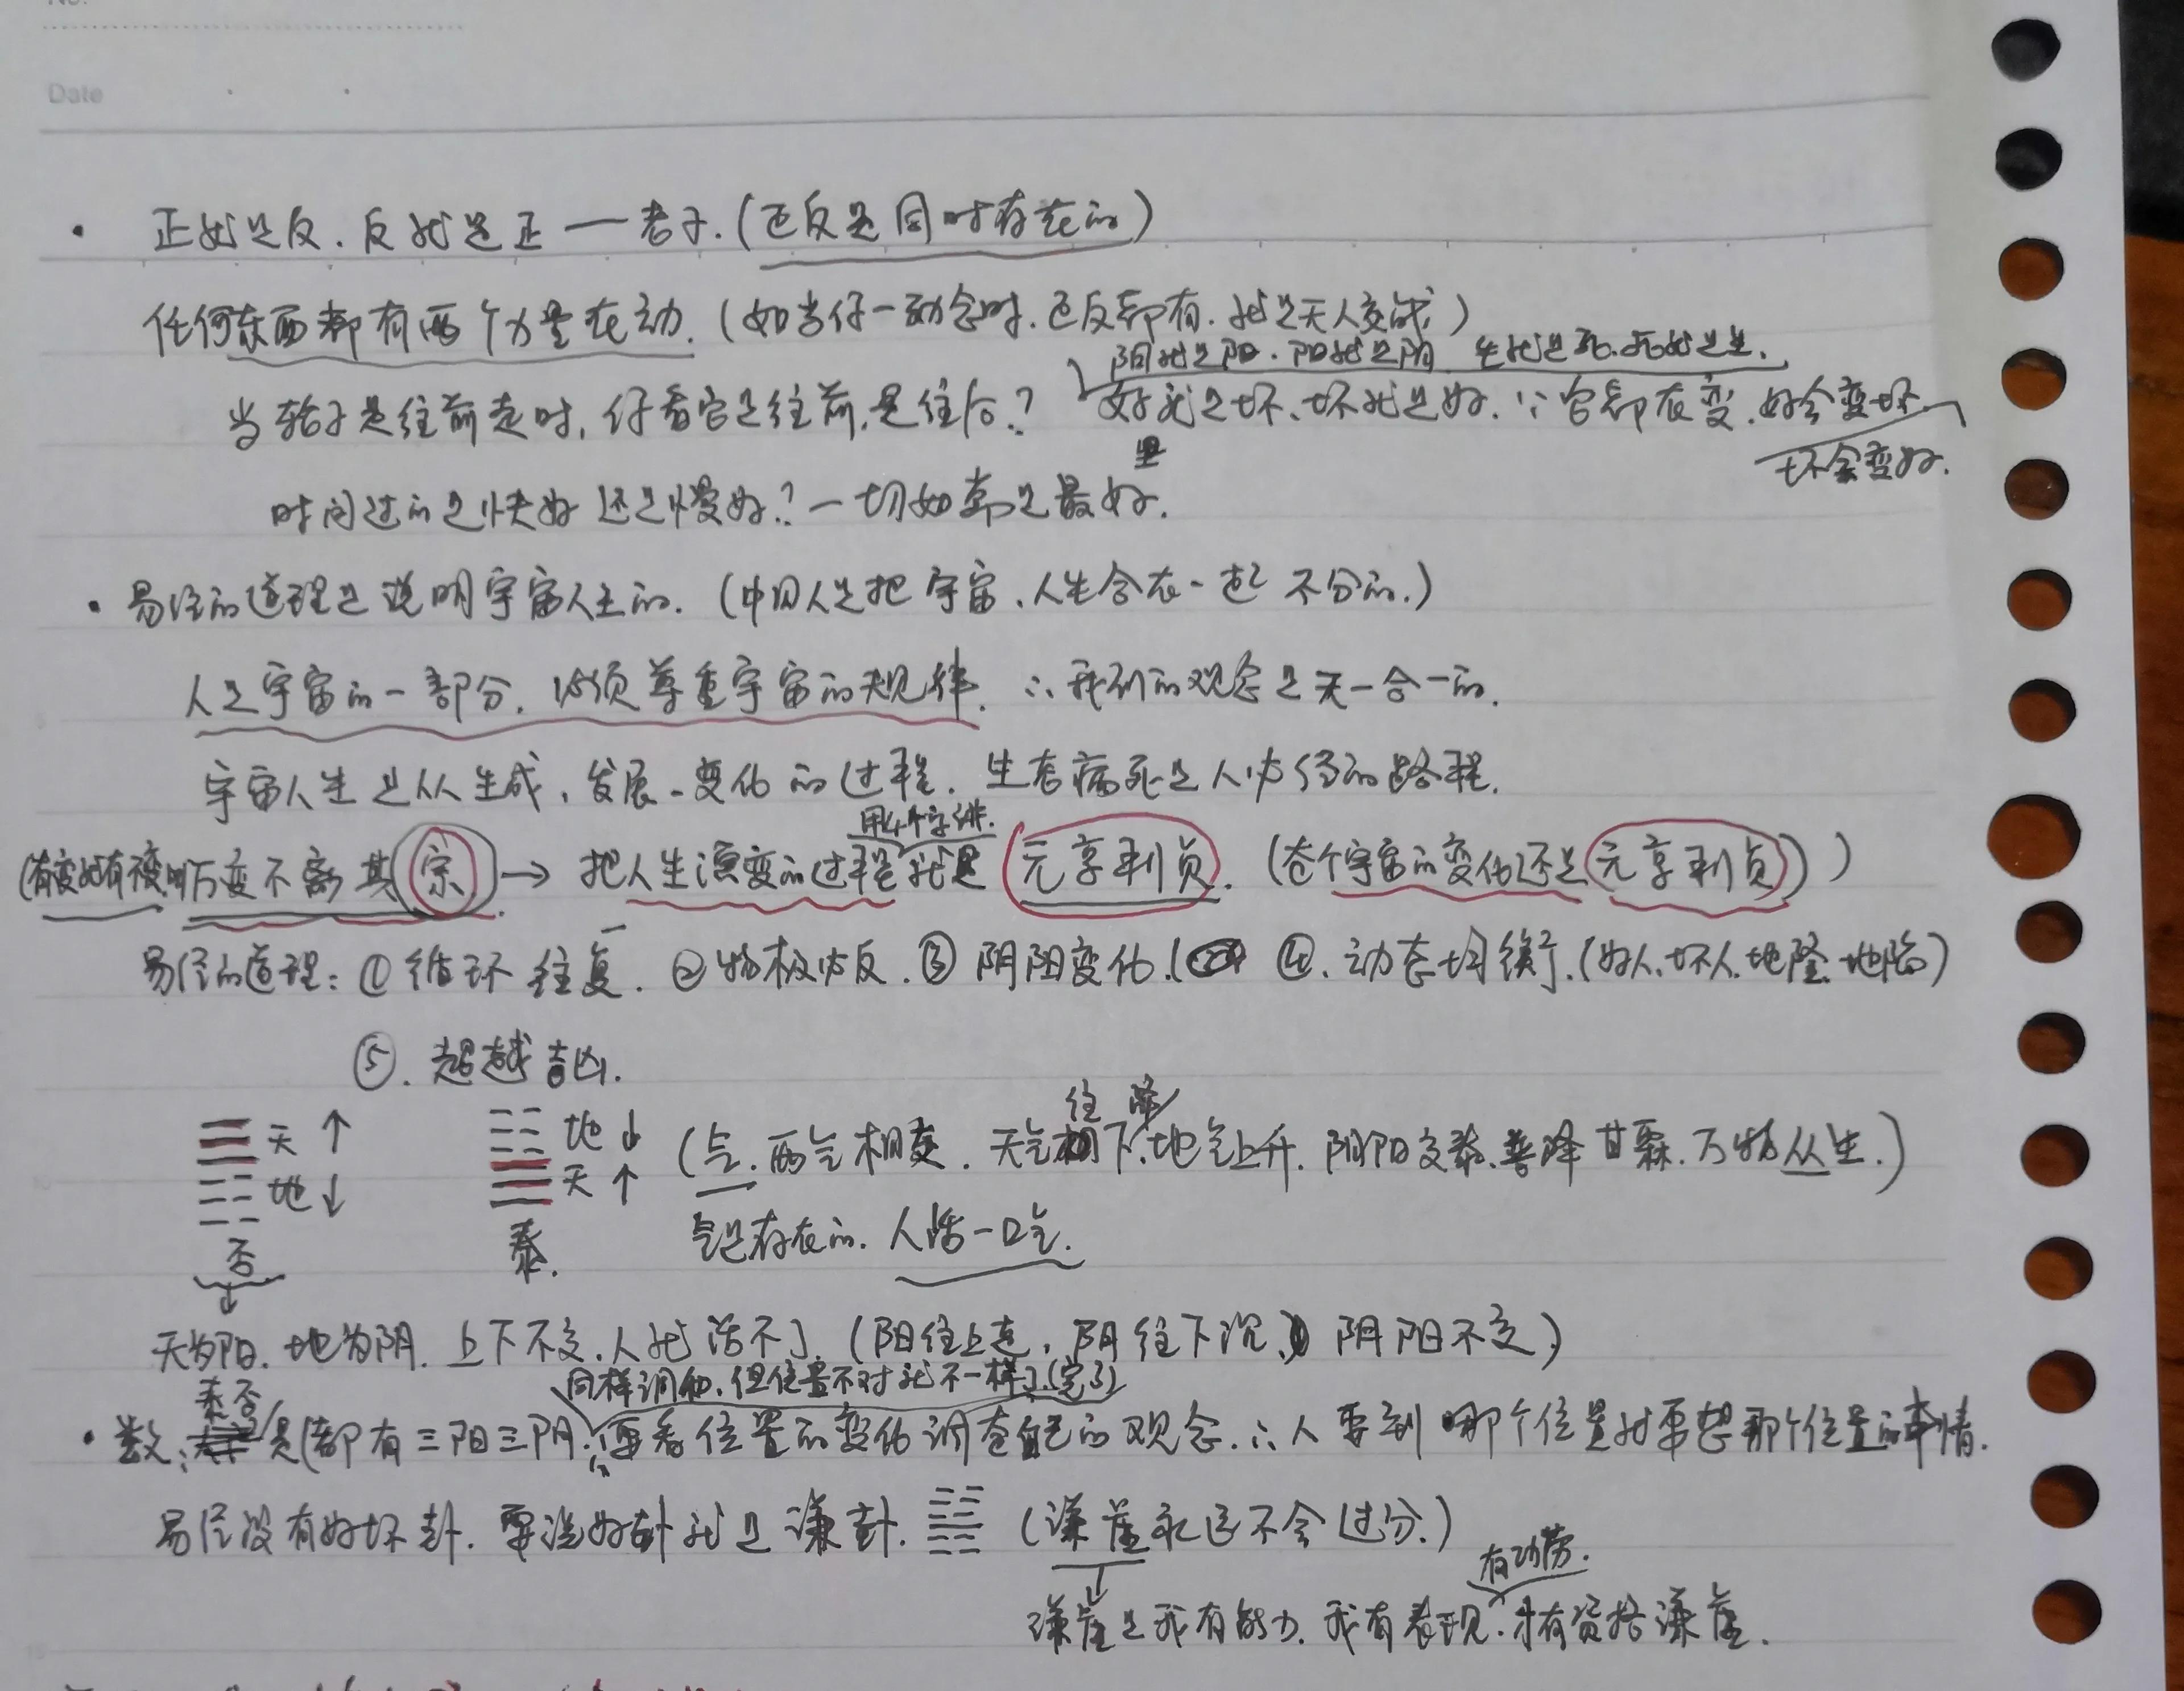 Date
· 正就是反.反就是正一老子.(正反是同时存在的)
任何东西都有两个力量在动.(如当你一动念时.正反都有.就是天人交战)
阴就是阳.阳就是阴 生就是死.死就是生.
当轮子是往前走时,你看它是往前,是往后? 好就是坏、坏就是好.∵它都在变.好会变坏
坏会变好.
时间过的是快好还是慢好?一切如常是最好.
· 易经的道理是说明宇宙人生的.(中国人是把宇宙、人生合在一起不分的.)
人是宇宙的一部分.必须尊重宇宙的规律.∴我们的观念是天一合一的.
宇宙人生是从生成、发展、变化的过程.生老病死是人必经的路程.
用4个字讲.
(有变就有不变 万变不离其宗→把人生演变的过程就是元享利贞.(整个宇宙的变化还是元享利贞))
易经的道理:①循环往复.②物极必反.③阴阳变化.④.动态均衡.(好人.坏人.地隆.地陷)
⑤.超越吉凶.
往 降
天↑ 地↓ (气.两气相交.天气下.地气上升.阴阳交泰.普降甘霖.万物丛生.)
地↓ 天↑
否 泰. 气是存在的.人活一口气.
↓
天为阳.地为阴.上下不交.人就活不了.(阳往上走,阴往下沉,阴阳不交)
同样调和.但位置不对就不一样了(完了)
泰否
· 数:是(都有三阳三阴.要看位置的变化调整自己的观念.∴人要到哪个位置就要想那个位置的事情.
易经没有好坏卦.要说好卦就是谦卦.(谦虚永远不会过分.)
有功劳.
↓
谦虚是我有能力.我有表现.才有资格谦虚.